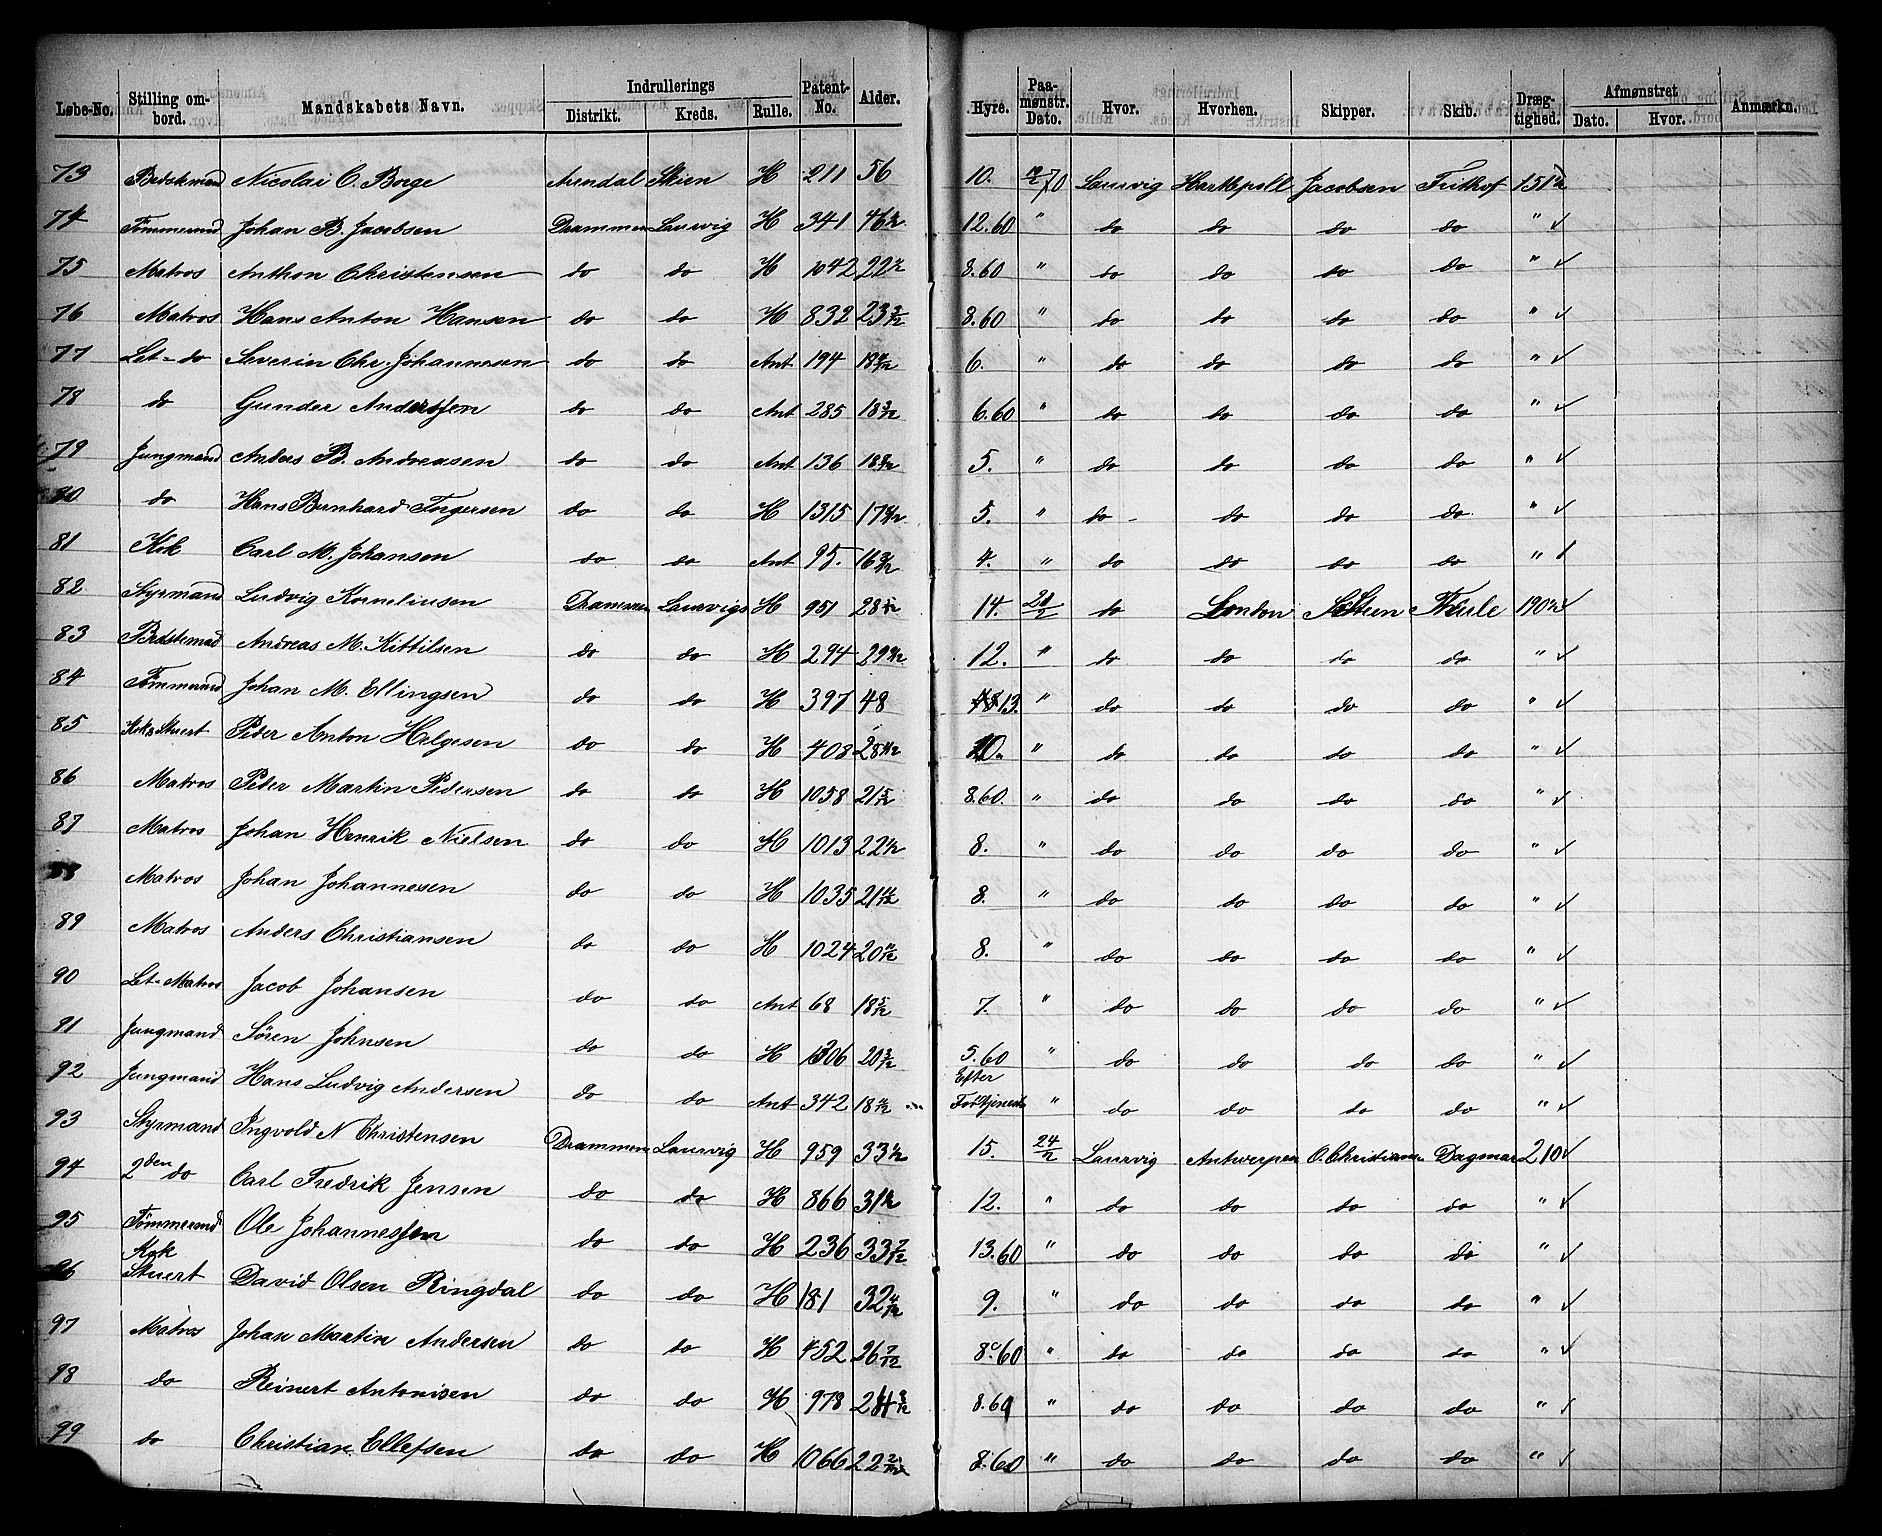 Løbe-No. Stilling ombord. Mandskabets Navn. Indrullerings Distrikt. Kreds. Rulle. Patent-No. Alder. Hyre. Paamønstr. Dato. Hvor. Hvorhen. Skipper. Skib. Drægtighed. Afmønstret Dato. Hvor. Anmærkn.
73 Nicolai C. Borge Arendal Skien H 211 56 10. Laurvig Hartlepoll Jacobsen Frithof 151½
74 Tømmermd Johan B. Jacobsen Drammen Laurvig H 341 12.60 " do do do do " ✓
75 Matros Anthon Christensen do do H 1042 8.60 " do do do do " ✓
76 Matros Hans Anton Hansen do do H 832 8.60 " do do do do " ✓
77 Let-do Severin Chr. Johannesen do do Ant 194 6. " do do do do " ✓
78 do Gunder Anderssen do do Ant 285 18 3/12 6.60 " do do do do " ✓
79 Jungmand Anders B. Andreasen do do Ant 136 5. " do do do do " ✓
80 do Hans Bernhard Torgersen do do H 1315 5. " do do do do " ✓
81 Kok Carl M. Johansen do do Ant 95. 4. " do do do do "
82 Styrmand Ludvig Korneliusen Drammen Laurvigs H 951 28 5/12 14. do London Thule ✓
83 Andreas M. Kittilsen do do H 294 12. " do do do do " ✓
84 Tømmermd Johan M. Ellingsen do do H 397 48 13. " do do do do " ✓
85 Kok & Stuert Peder Anton Helgesen do do H 408 10. " do do do do " ✓
86 Matros Peder Martin Pedersen do do H 1058 21 5/12 8.60. " do do do do " ✓
87 Matros Johan Henrik Nielsen do do H 1013 8. " do do do do " ✓
88 Matros Johan Johannesen do do H 1035 8. " do do do do " ✓
89 Matros Anders Christiansen do do H 1024 8. " do do do do " ✓
90 Let-Matros Jacob Johansen do do Ant 68 18 5/12 7. " do do do do " ✓
91 Jungmand Sören Johnsen do do H 20 3/12 5.60 " do do do do " ✓
92 Jungmand Hans Ludvig Andersen do do Ant 342 Efter Fortjeneste " do do do do " ✓
93 Styrmand Ingvold N Christensen Drammen Laurvig H 959 15. 24/2 Laurvig Antwerpen O. Christians. Dagmar 210 ✓
94 2den do Carl Fredrik Jensen do do H 866 12. " do do do do " ✓
95 Tømmermd Ole Johannessen do do H 236 33 7/12 13.60 " do do do do " ✓
96 Kok Stuert David Olsen Ringdal do do H 181 32 4/12 9. " do do do do " ✓
97 Matros Johan Martin Andersen do do H 452 26 7/12 8.60 " do do do do " ✓
98 do Reinert Antonisen do do H 978 8.60 " do do do do " ✓
99 do Christian Ellefsen do do H 1066 22 2/12 8.60 " do do do do " ✓